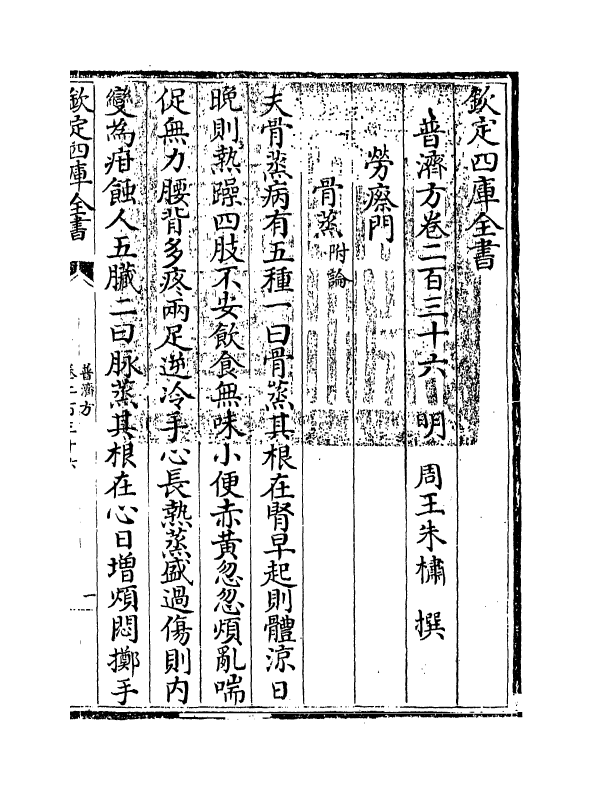 欽定四庫全書
普濟方卷二百三十六 明 周王朱橚 撰
勞瘵門
骨蒸附論
夫骨蒸病有五種一曰骨蒸其根在腎早起則體涼日
晚則熱躁四肢不安飲食無味小便赤黃忽忽煩亂喘
促無力腰背多疼兩足逆冷手心長熱蒸盛過傷則內
變為疳蝕人五臟二曰脉蒸其根在心日增煩悶擲手
欽定四庫全書
普濟方
卷二百三十六
一